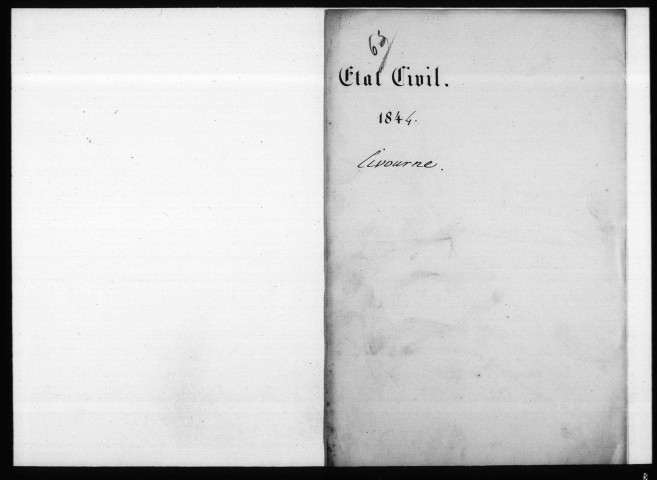 63
Etat Civil.
1844.
Livourne.